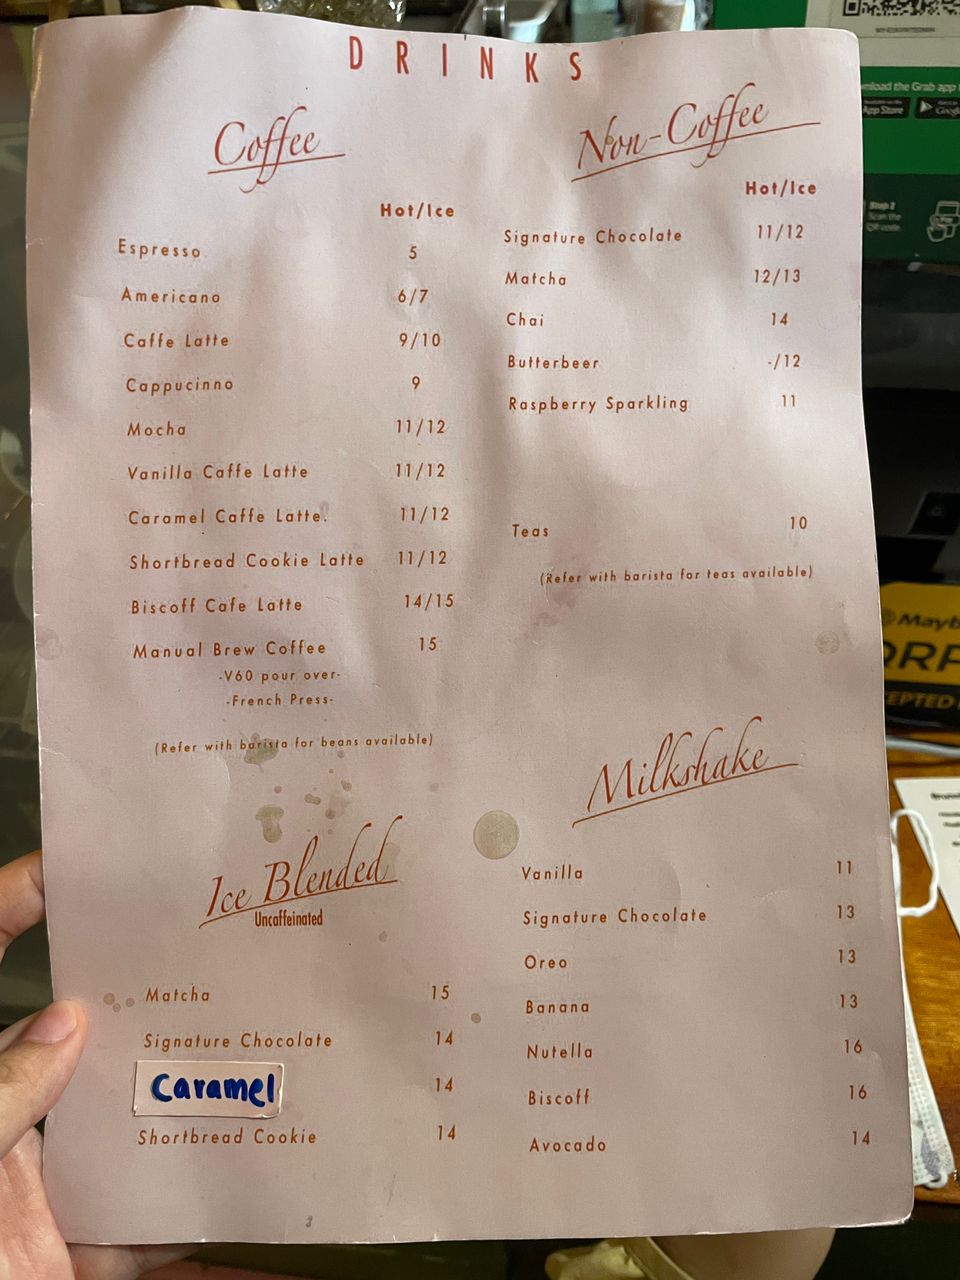 DRINKS
Coffee
Hot/Ice
Espresso 5
Americano 6/7
Caffe Latte 9/10
Cappucinno 9
Mocha 11/12
Vanilla Caffe Latte 11/12
Caramel Caffe Latte. 11/12
Shortbread Cookie Latte 11/12
Biscoff Cafe Latte 14/15
Manual Brew Coffee 15
-V60 pour over-
-French Press-
(Refer with barista for beans available)
Ice Blended
Uncaffeinated
Matcha 15
Signature Chocolate 14
Caramel 14
Shortbread Cookie 14
Non-Coffee
Hot/Ice
Signature Chocolate 11/12
Matcha 12/13
Chai 14
Butterbeer -/12
Raspberry Sparkling 11
Teas 10
(Refer with barista for teas available)
Milkshake
Vanilla 11
Signature Chocolate 13
Oreo 13
Banana 13
Nutella 16
Biscoff 16
Avocado 14
the Grab app
App Store
Step 2
Scan the
QR code